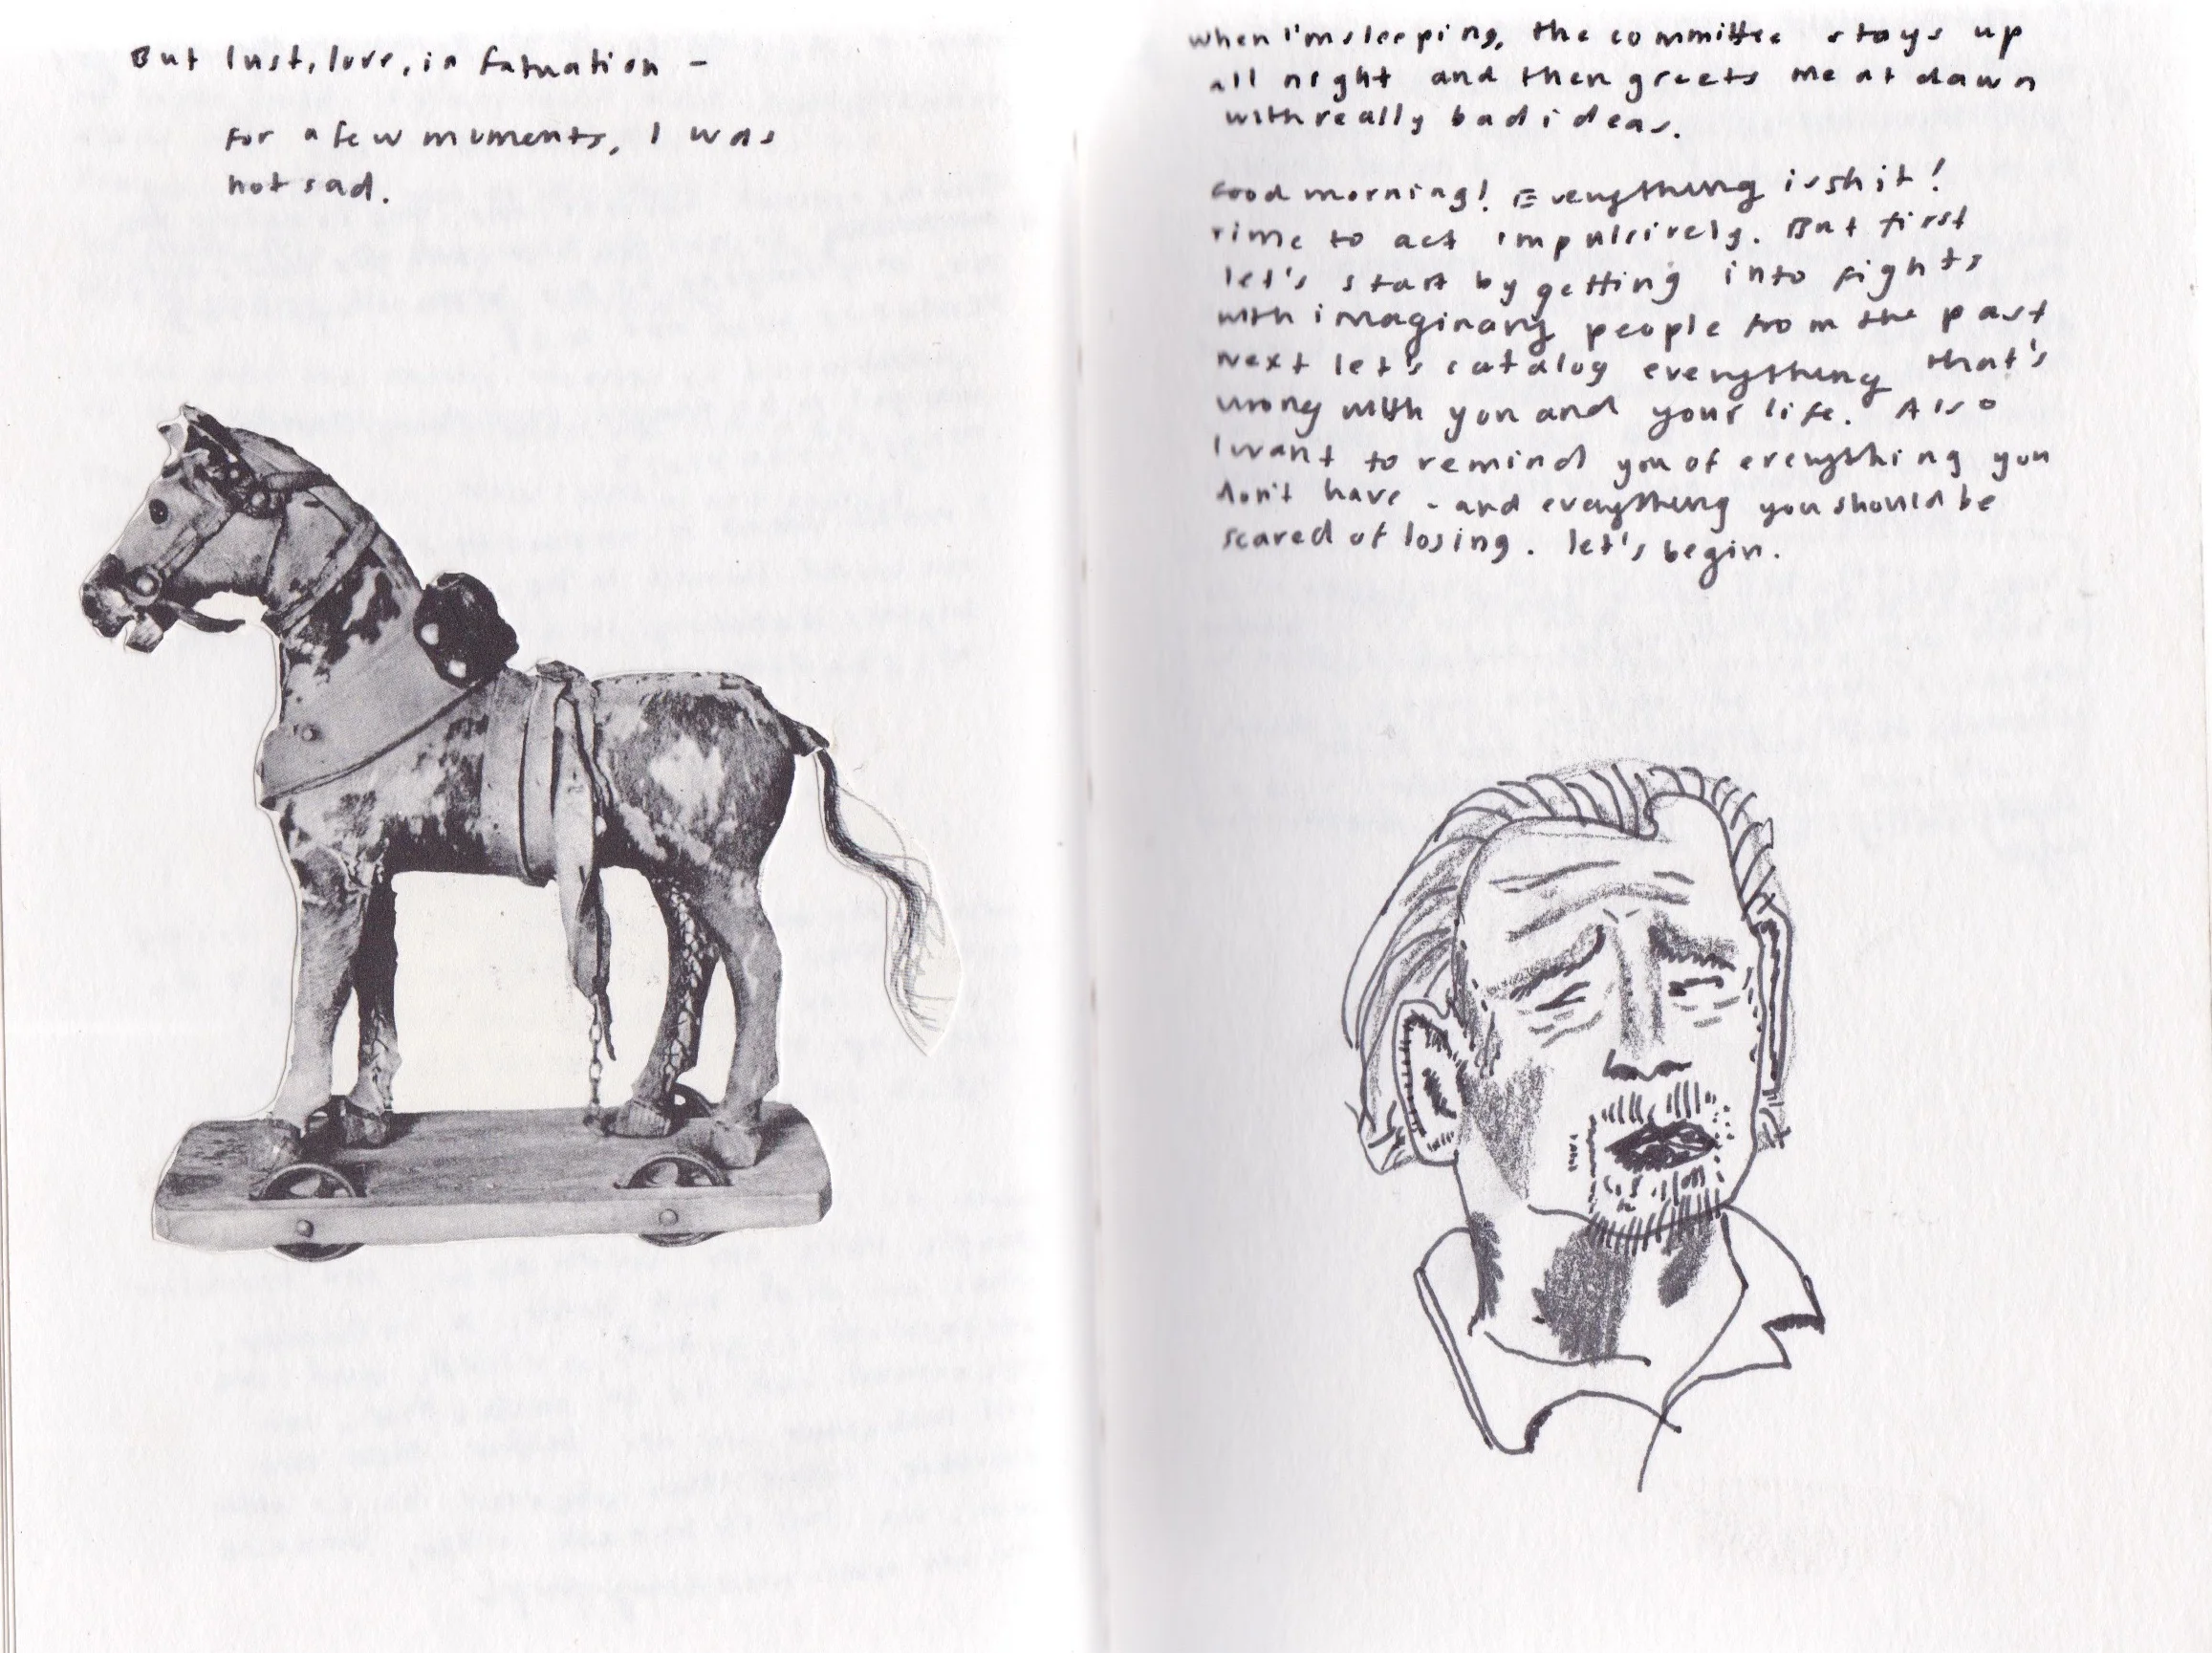 But lust, love, infatuation -
for a few moments, I was
not sad.
when I'm sleeping, the committee stays up
all night and then greets me at dawn
with really bad ideas.
Good morning! Everything is shit!
Time to act impulsively. But first
let's start by getting into fights
with imaginary people from the past
Next let's catalog everything that's
wrong with you and your life. Also
I want to remind you of everything you
don't have - and everything you should be
scared of losing. let's begin.